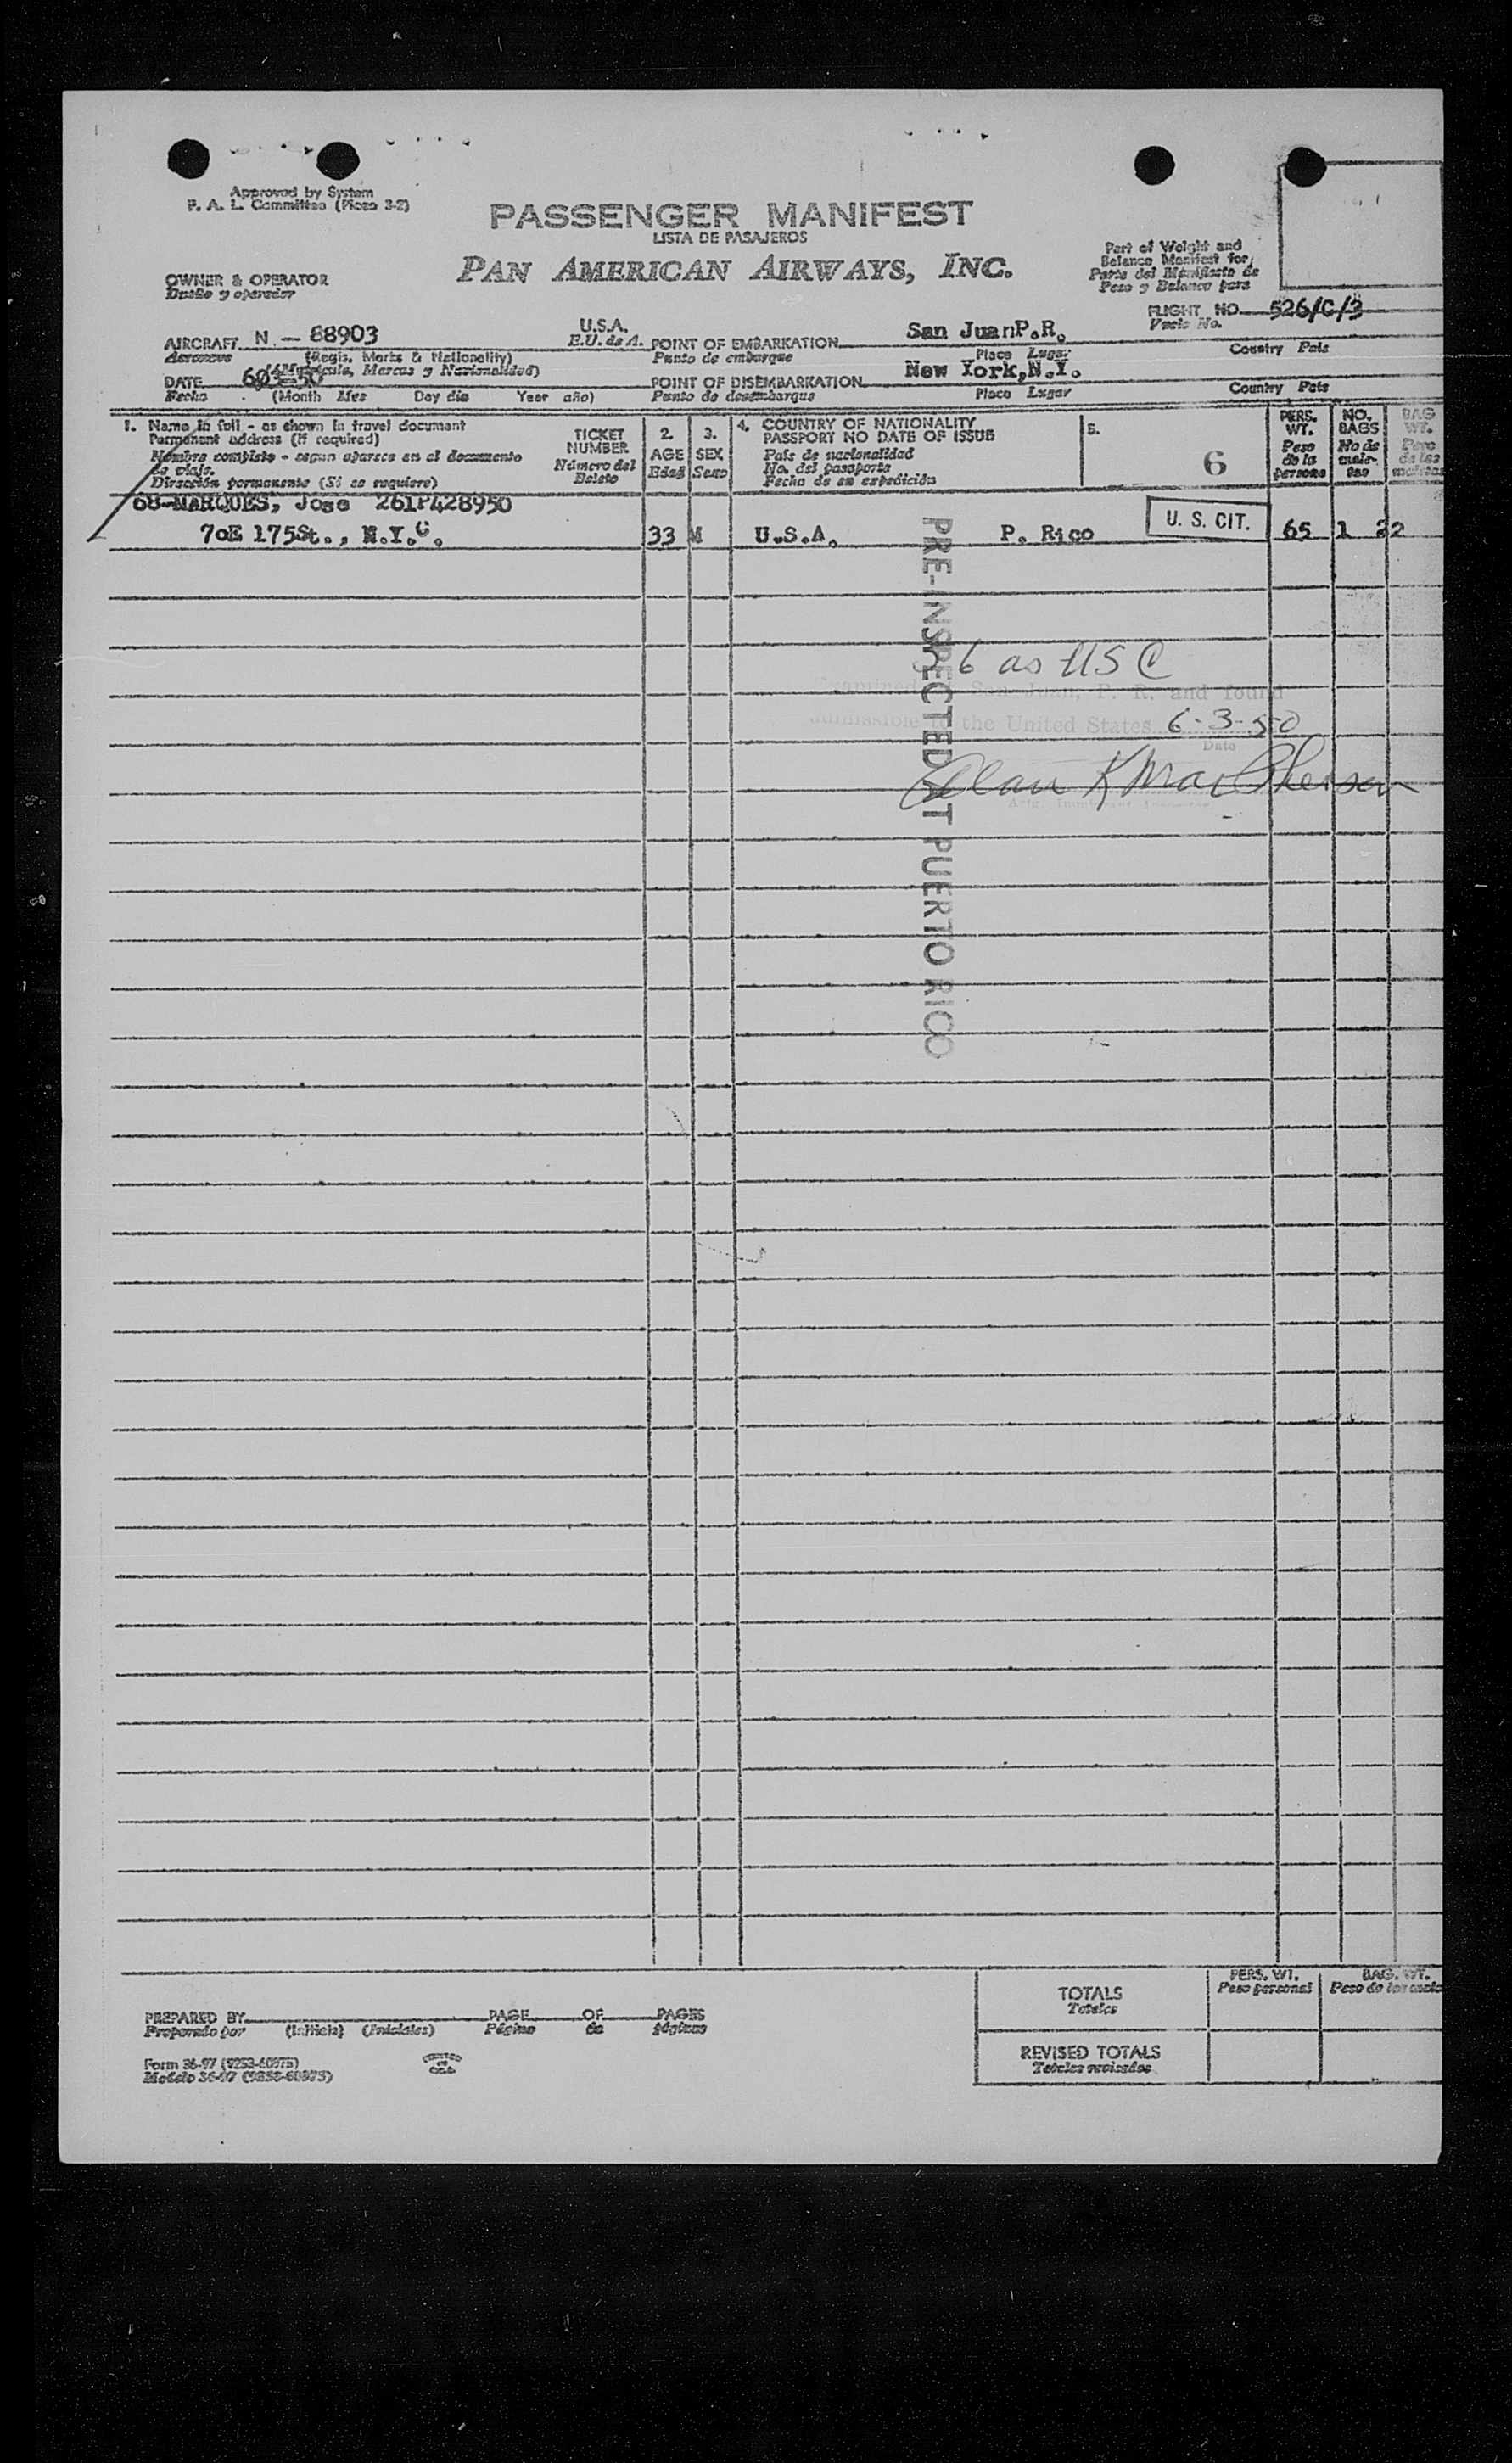 Approved by System
F. A. L. Committee (Picao 3-2)
PASSENGER MANIFEST
LISTA DE PASAJEROS
PAN AMERICAN AIRWAYS, INC.
Part of Weight and
Balance Manifest for
Parte del Manifiesto de
Peso y Balance para
OWNER & OPERATOR
Dueño y operador
FLIGHT NO. 526/C/3
Vuelo No.
AIRCRAFT N - 88903 U.S.A. POINT OF EMBARKATION San JuanP.R.
Aeronave (Regis. Marks & Nationality) E.U. de A. Punto de embarque Place Lugar Country País
(Matrícula, Marcas y Nacionalidad)
DATE POINT OF DISEMBARKATION New York,N.Y.
Fecha (Month Mes Day día Year año) Punto de desembarque Place Lugar Country País
1. Name in full - as shown in travel document
Permanent address (If required)
Nombre completo - segun aparece en el documento
de viaje.
Dirección permanente (Si se requiere)
TICKET
NUMBER
Número del
Boleto
2.
AGE
Edad
3.
SEX
Sexo
4. COUNTRY OF NATIONALITY
PASSPORT NO DATE OF ISSUE
País de nacionalidad
No. del pasaporte
Fecha de su expedición
5.
6
PERS.
WT.
Peso
de la
persona
NO.
BAGS
No de
male-
tas
BAG
WT.
Peso
de las
maletas
68-MARQUES, Jose 261P428950
70E 175St., N.Y.C. 33 M U.S.A. P. Rico U. S. CIT. 65 1 22
PRE-INSPECTED AT PUERTO RICO
6 as USC
Examined San Juan, P. R. and found
admissible to the United States 6-3-50
Date
Alan K MacPherson
TOTALS
Totales
PERS. WT.
Peso personal
BAG. WT.
PREPARED BY PAGE OF PAGES
Preparado por (Initials) (Iniciales) Página de páginas
REVISED TOTALS
Totales revisados
Form 36-97 (9253-60975)
Modelo 36-97 (9253-60975)